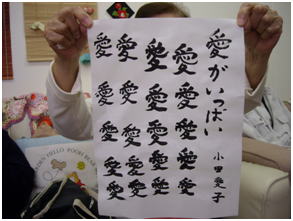 愛がいっぱい
小田愛子
愛愛愛愛愛
愛愛愛愛愛
愛愛愛愛愛
愛愛愛愛愛
HELLO POOH BEAR